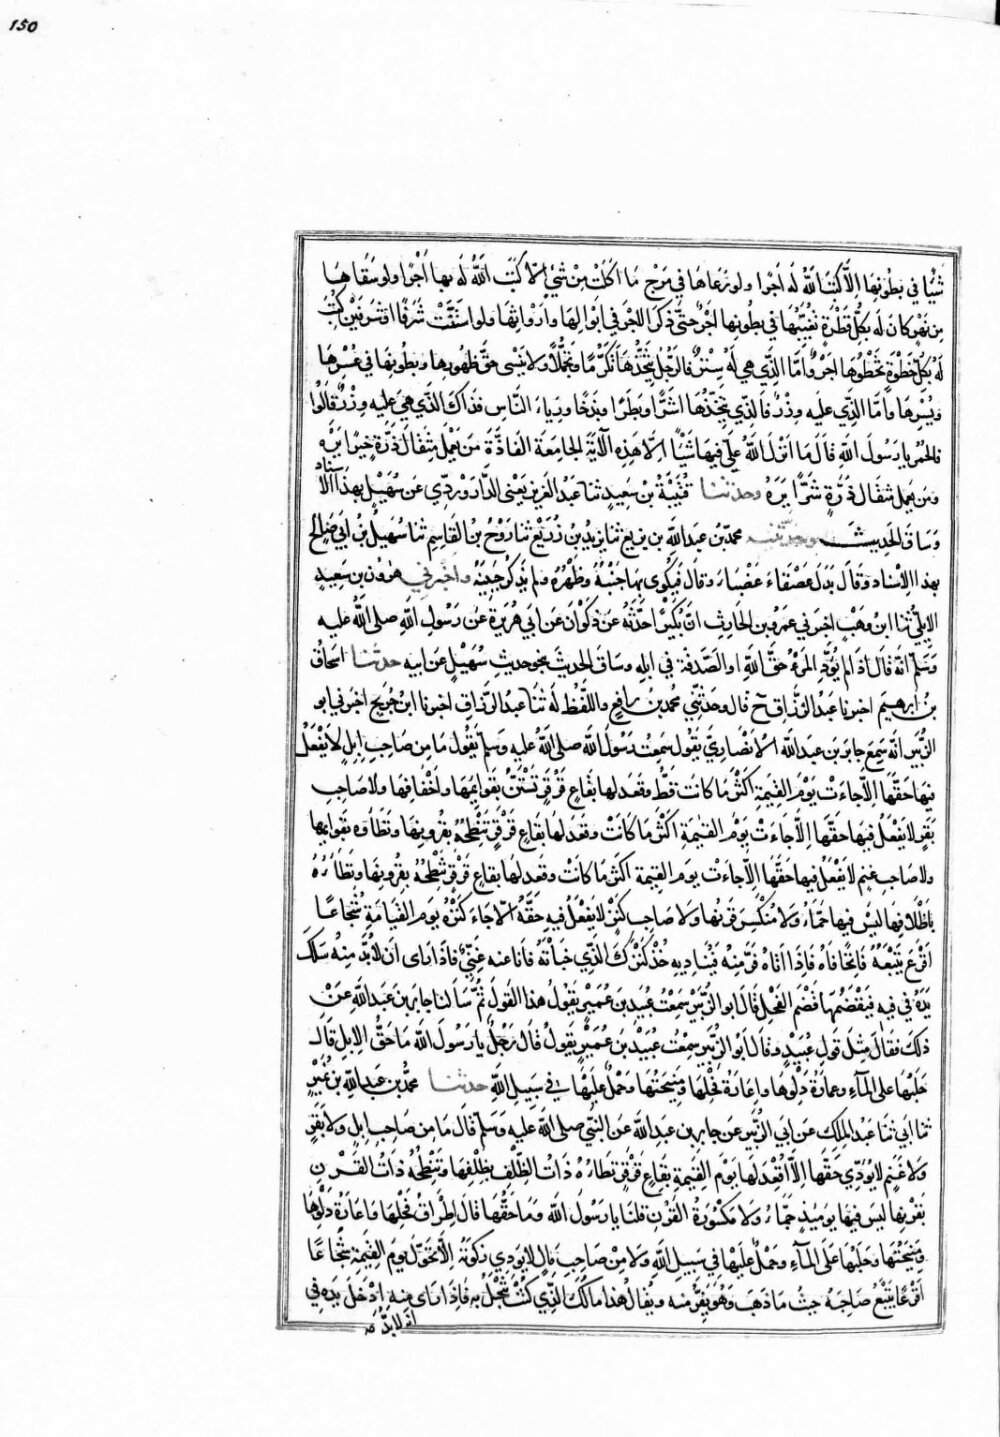 150
شيئا في بطونها الا كتب الله له اجرا ولو رعاها في مرج ما اكلت من شئ الا كتب الله له بها اجرا ولو سقاها
من نهر كان له بكل قطرة تغيبها في بطونها اجر حتى ذكر الاجر في ابوالها وارواثها ولو استنت شرفا او شرفين كتب
له بكل خطوة تخطوها اجر واما الذي هي له ستر فالرجل يتخذها تكرما وتجملا ولا ينسى حق ظهورها وبطونها في عسرها
ويسرها واما الذي عليه وزر فالذي يتخذها اشرا وبطرا وبذخا ورياء الناس فذاك الذي هي عليه وزر قالوا
فالحمر يا رسول الله قال ما انزل الله علي فيها شيئا الا هذه الآية الجامعة الفاذة من يعمل مثقال ذرة خيرا يره
ومن يعمل مثقال ذرة شرا يره وحدثنا قتيبة بن سعيد ثنا عبد العزيز يعني الدراوردي عن سهيل بهذا الاسناد
وساق الحديث وحدثنيه محمد بن عبد الله بن بزيع ثنا يزيد بن زريع ثنا روح بن القاسم ثنا سهيل بن ابي صالح
بهذا الاسناد وقال بدل عصقاء عضباء وقال فيكوى بها جنبه وظهره ولم يذكر جبينه واخبرني هرون بن سعيد
الايلي ثنا ابن وهب اخبرني عمرو بن الحارث ان بكيرا حدثه عن ذكوان عن ابي هريرة عن رسول الله صلى الله عليه
وسلم انه قال اذا لم يؤد المرء حق الله او الصدقة في ابله وساق الحديث بنحو حديث سهيل عن ابيه حدثنا اسحاق
بن ابرهيم اخبرنا عبد الرزاق ح قال وحدثني محمد بن رافع واللفظ له ثنا عبد الرزاق اخبرنا ابن جريج اخبرني ابو
الزبير انه سمع جابر بن عبد الله الانصاري يقول سمعت رسول الله صلى الله عليه وسلم يقول ما من صاحب ابل لا يفعل
فيها حقها الا جاءت يوم القيمة اكثر ما كانت قط وقعد لها بقاع قرقر تستن بقوايمها واخفافها ولا صاحب
بقر لا يفعل فيها حقها الا جاءت يوم القيمة اكثر ما كانت وقعد لها بقاع قرقر تنطحه بقرونها وتطاوه بقوايمها
ولا صاحب غنم لا يفعل فيها حقها الا جاءت يوم القيمة اكثر ما كانت وقعد لها بقاع قرقر تنطحه بقرونها وتطاره
باظلافها ليس فيها جماء ولا منكسر قرنها ولا صاحب كنز لا يفعل فيه حقه الا جاء كنزه يوم القيامة شجاعا
اقرع يتبعه فاتحا فاه فاذا اتاه فر منه فيناديه خذ كنزك الذي خباته فانا عنه غني فاذا راى ان لا بد منه سلك
يده في فيه فيقضمها قضم الفحل قال ابو الزبير سمعت عبيد بن عمير يقول هذا القول ثم سالنا جابر بن عبد الله عن
ذلك فقال مثل قول عبيد وقال ابو الزبير سمعت عبيد بن عمير يقول قال رجل يا رسول الله ما حق الابل قال
حلبها على المآء وعمارة دلوها واعارة فحلها ومنيحتها وحمل عليها في سبيل الله حدثنا محمد بن عبد الله بن نمير
ثنا ابي ثنا عبد الملك عن ابي الزبير عن جابر بن عبد الله عن النبي صلى الله عليه وسلم قال ما من صاحب ابل ولا بقر
ولا غنم لا يؤدي حقها الا اقعد لها يوم القيمة بقاع قرقر تطاره ذات الظلف بظلفها وتنطحه ذات القرن
بقرنها ليس فيها يوميذ جماء ولا مكسورة القرن قلنا يا رسول الله وما حقها قال اطراق فحلها واعارة دلوها
ومنيحتها وحلبها على المآء وحمل عليها في سبيل الله ولا من صاحب مال لا يودي زكوته الا تحول يوم القيمة شجاعا
اقرعا يتبع صاحبه حيث ما ذهب وهو يفر منه ويقال هذا مالك الذي كنت تبخل به فاذا راى منه ادخل يده في
انه لا بد